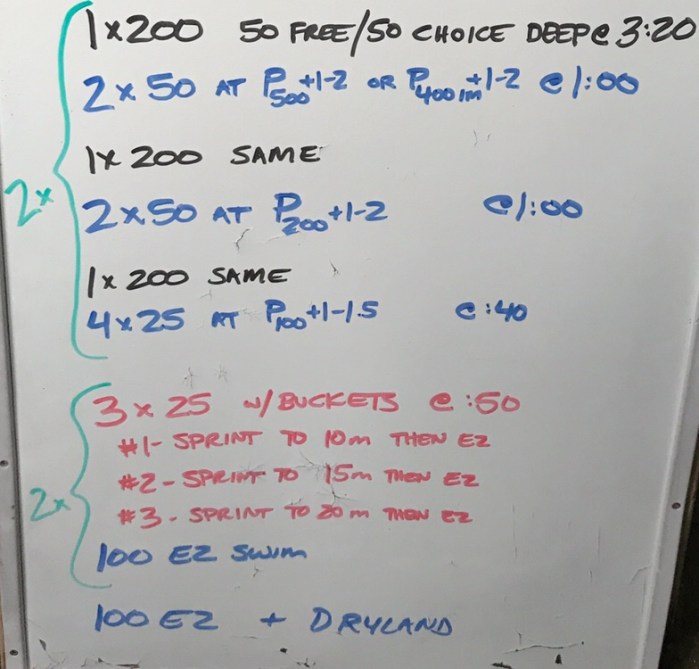 1 x 200 50 FREE/50 CHOICE DEEP @ 3:20
2 x 50 AT P500 +1-2 OR P400 IM +1-2 @ 1:00
1 x 200 SAME
2x
2 x 50 AT P200 +1-2 @ 1:00
1 x 200 SAME
4 x 25 AT P100 +1-1.5 @ :40
3 x 25 W/ BUCKETS @ :50
#1- SPRINT TO 10m THEN EZ
#2 - SPRINT TO 15m THEN EZ
2x
#3 - SPRINT TO 20m THEN EZ
100 EZ SWIM
100 EZ + DRYLAND